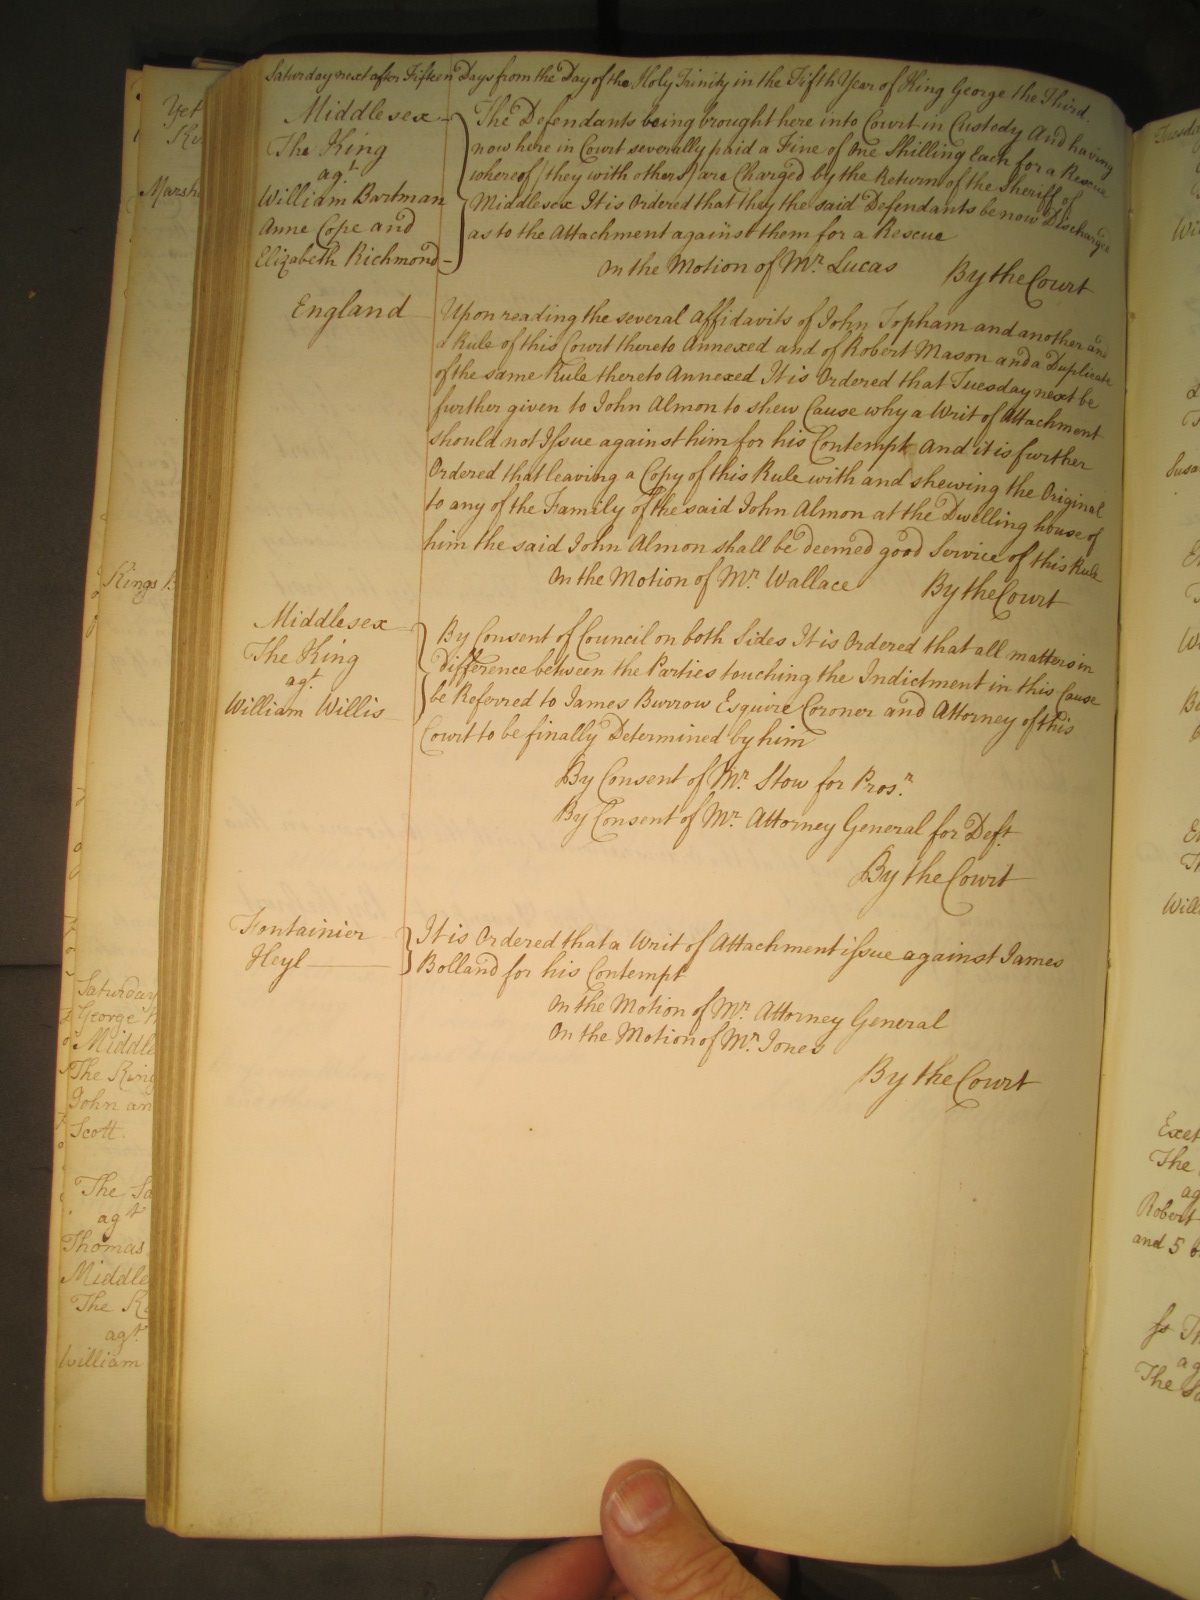 Saturday next after Fifteen Days from the Day of the Holy Trinity in the Fifth Year of King George the Third.
Middlesex
The King
agt
William Bartman
Anne Cope and
Elizabeth Richmond
The Defendants being brought here into Court in Custody And having
now here in Court severally paid a Fine of One Shilling Each for a Rescue
whereof (they with others) are Charged by the Return of the Sheriff of
Middlesex It is Ordered that they the said Defendants be now Discharged
as to the Attachment against them for a Rescue
On the Motion of Mr. Lucas By the Court
England
Upon reading the several Affidavits of John Topham and another and
a Rule of this Court thereto Annexed and of Robert Mason and a Duplicate
of the same Rule thereto Annexed It is Ordered that Tuesday next be
further given to John Almon to shew Cause why a Writ of Attachment
should not Issue against him for his Contempt And it is further
Ordered that leaving a Copy of this Rule with and shewing the Original
to any of the Family of the said John Almon at the Dwelling house of
him the said John Almon shall be deemed good Service of this Rule
On the Motion of Mr. Wallace By the Court
Middlesex
The King
agt.
William Willis
By Consent of Council on both Sides It is Ordered that all matters in
difference between the Parties touching the Indictment in this Cause
be Referred to James Burrow Esquire Coroner and Attorney of this
Court to be finally Determined by him
By Consent of Mr. Stow for Prosr.
By Consent of Mr. Attorney General for Deft.
By the Court
Fontainier
Heyl
It is Ordered that a Writ of Attachment issue against James
Bolland for his Contempt
On the Motion of Mr. Attorney General
On the Motion of Mr. Jones
By the Court
Yet
Kings B
Saturday
George
Middle
The King
John an
Scott.
The
agt
Thomas
Middle
The
agt.
William
Exet
The
Robert
and 5
The